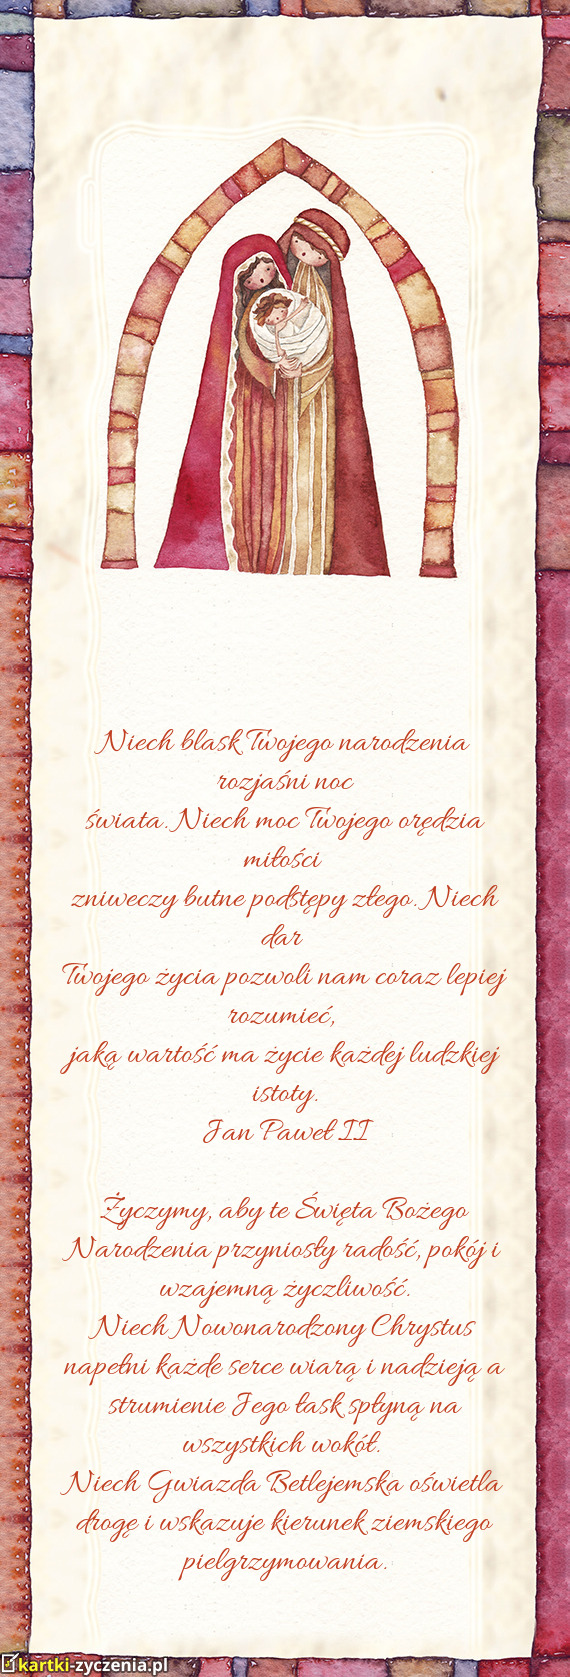 Niech blask Twojego narodzenia
rozjaśni noc
świata. Niech moc Twojego orędzia
miłości
zniweczy butne podstępy złego. Niech
dar
Twojego życia pozwoli nam coraz lepiej
rozumieć,
jaką wartość ma życie każdej ludzkiej
istoty.
Jan Paweł II
Życzymy, aby te Święta Bożego
Narodzenia przyniosły radość, pokój i
wzajemną życzliwość.
Niech Nowonarodzony Chrystus
napełni każde serce wiarą i nadzieją a
strumienie Jego łask spłyną na
wszystkich wokół.
Niech Gwiazda Betlejemska oświetla
drogę i wskazuje kierunek ziemskiego
pielgrzymowania.
kartki-zyczenia.pl